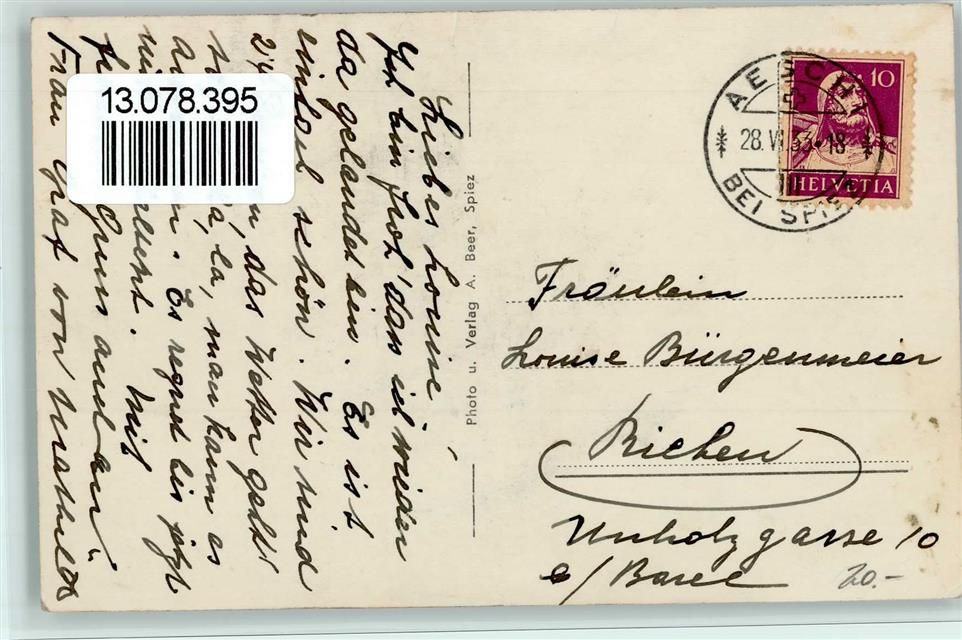 Liebes Louise!
Ich bin froh das ich wieder
da gelandet bin. Es ist
einfach schön. Wir sind
das Wetter geht
la, la, man kann es
Es regnet bis jetzt
Mit
Gruss auch an
Frau Graf von Mathilde
13.078.395
Photo u. Verlag A. Beer, Spiez
AESCHI
28.VI.33-18
III
BEI SPIEZ
10
HELVETIA
Fräulein
Louise Bürgenmeier
Riehen
Unholzgasse 10
b/Basel
20.-